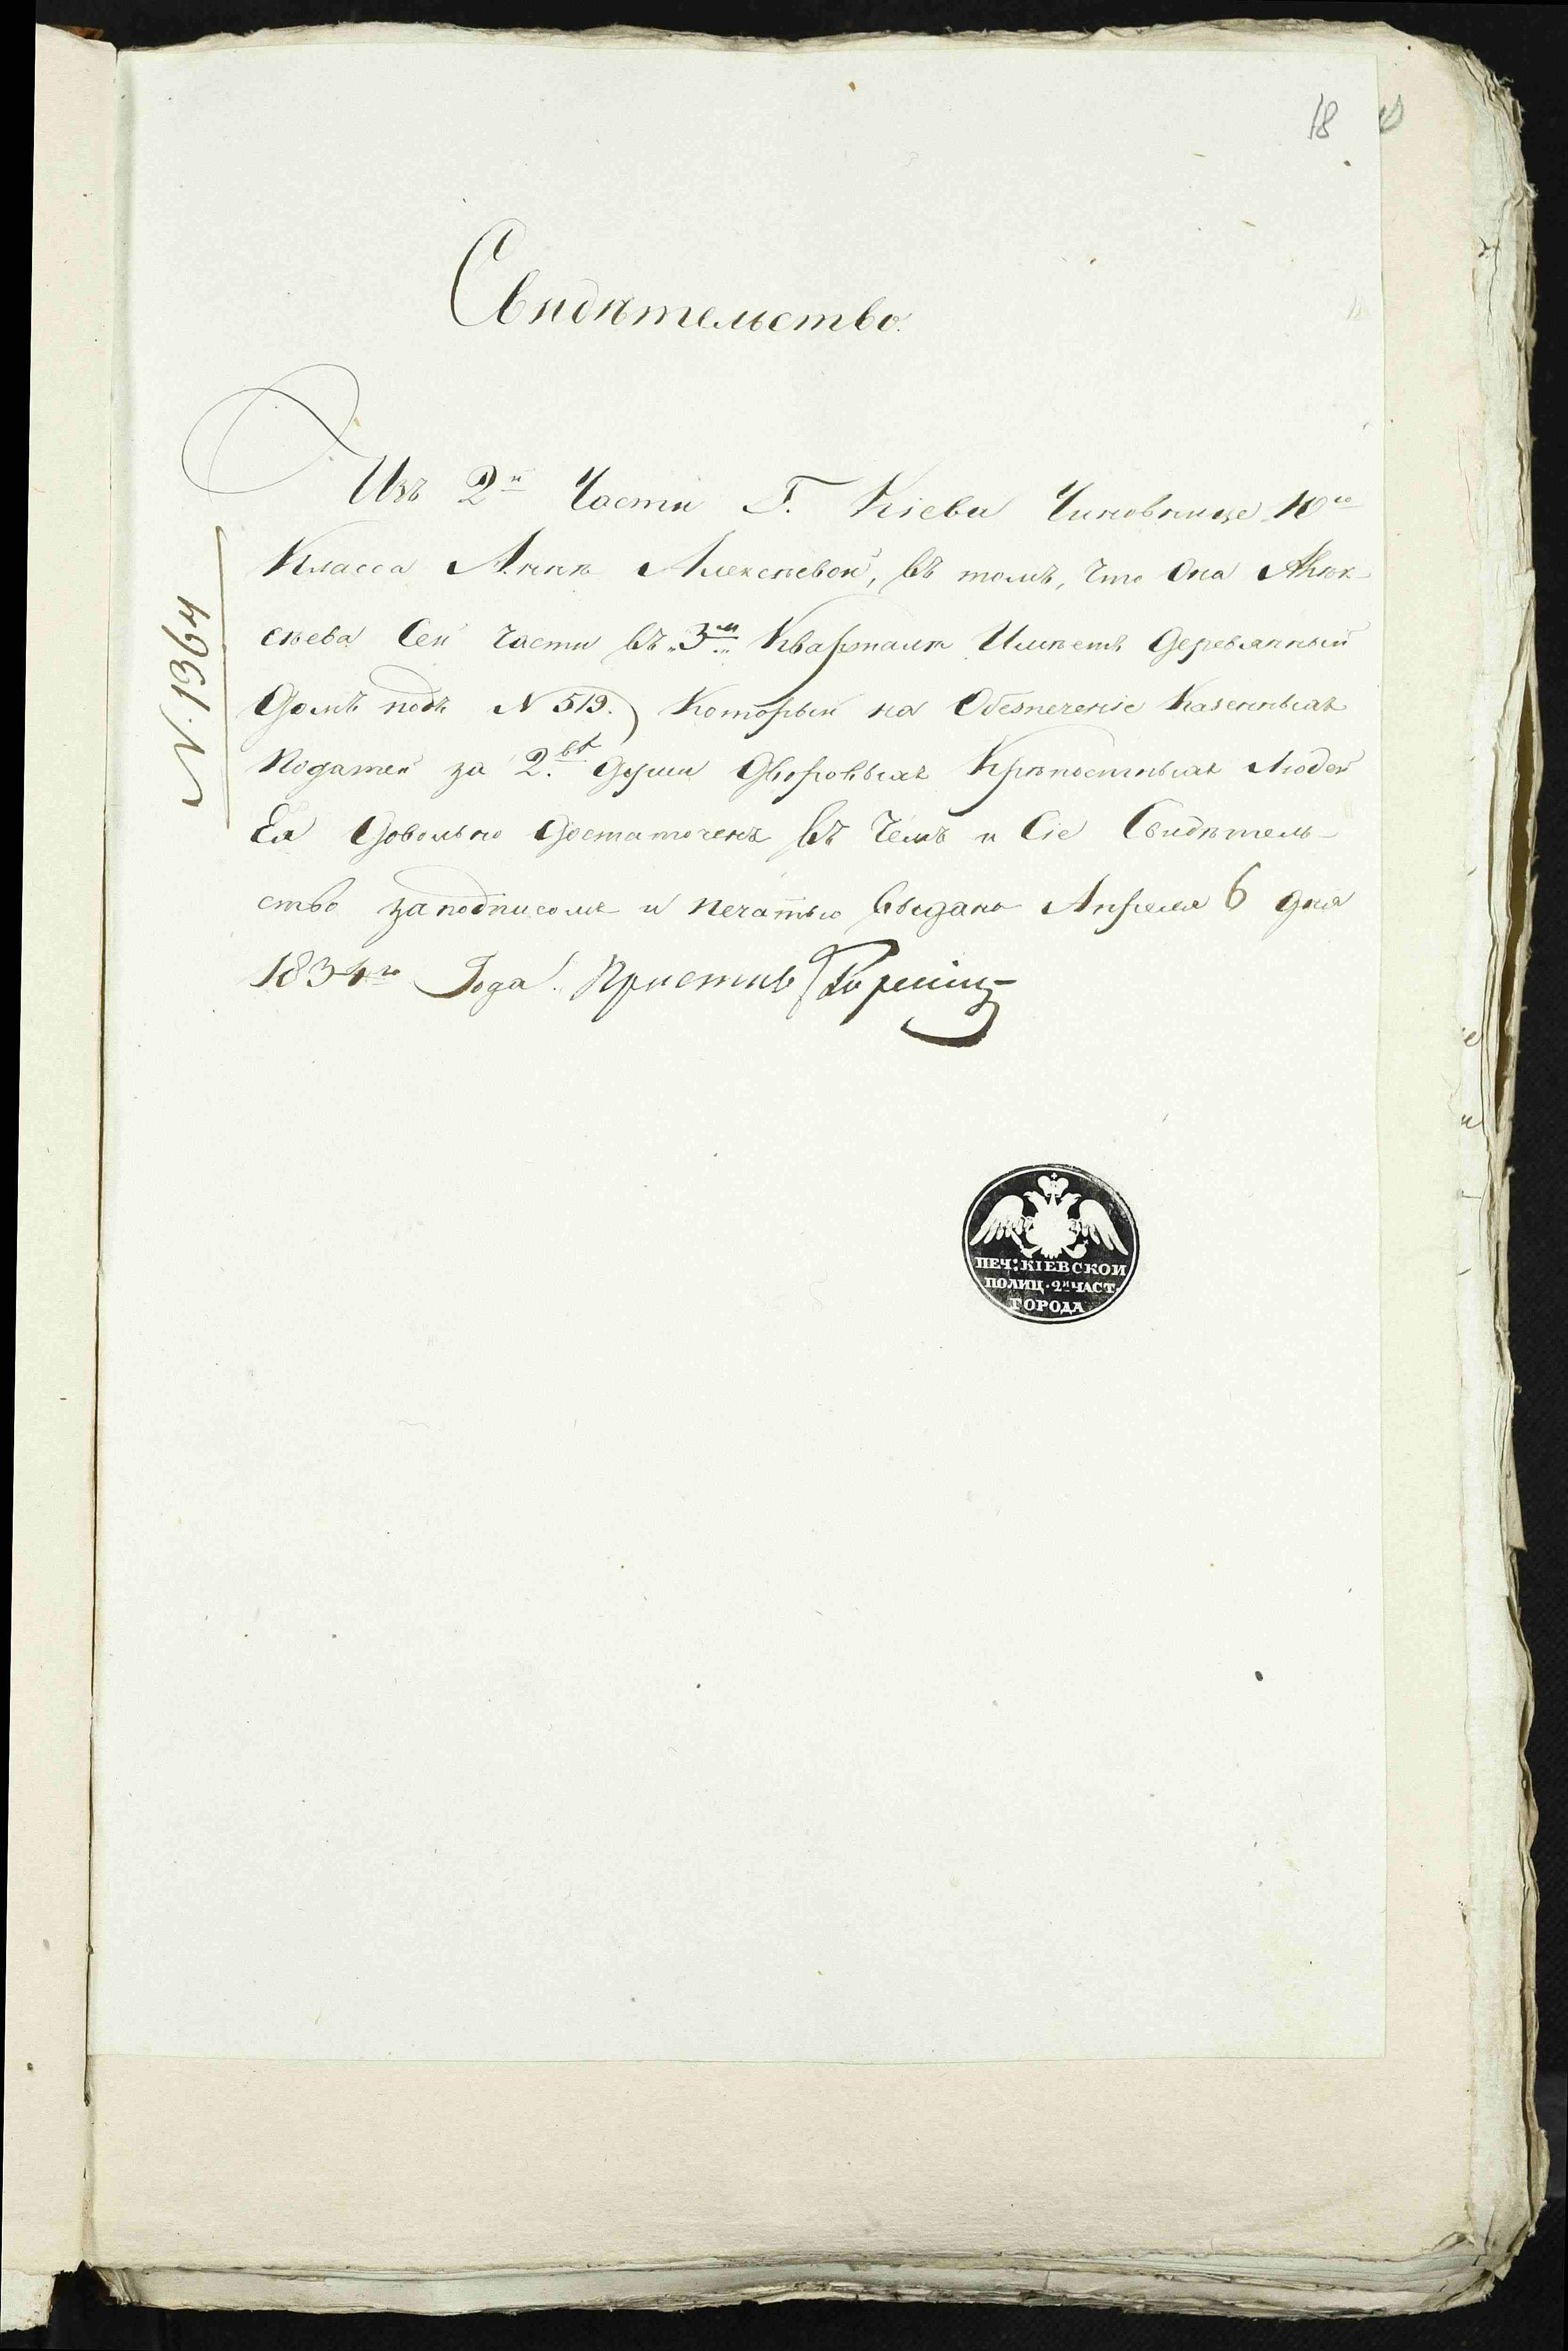 18
Свидѣтельство.
Изъ 2й Части Г. Кіева Чиновнице 10го
Класса Аннѣ Алексѣевой, въ томъ, что Она Алек-
сѣева Сей части въ „3м„ Кварталѣ Имѣетъ Деревянный
Домъ подъ N 519. Который на Обезпеченіе Казенныхъ
Податей за 2.вѣ души Дворовыхъ Крѣпостныхъ Людей
Ея Довольно Достаточенъ Въ Чемъ и Сіе Свидѣтель-
ство за подписомъ и печатью Выдано Апреля 6 дня
1834го Года. Приставъ
N. 1364
ПЕЧ: КІЕВСКОЙ
ПОЛИЦ. 2й ЧАСТ.
ГОРОДА